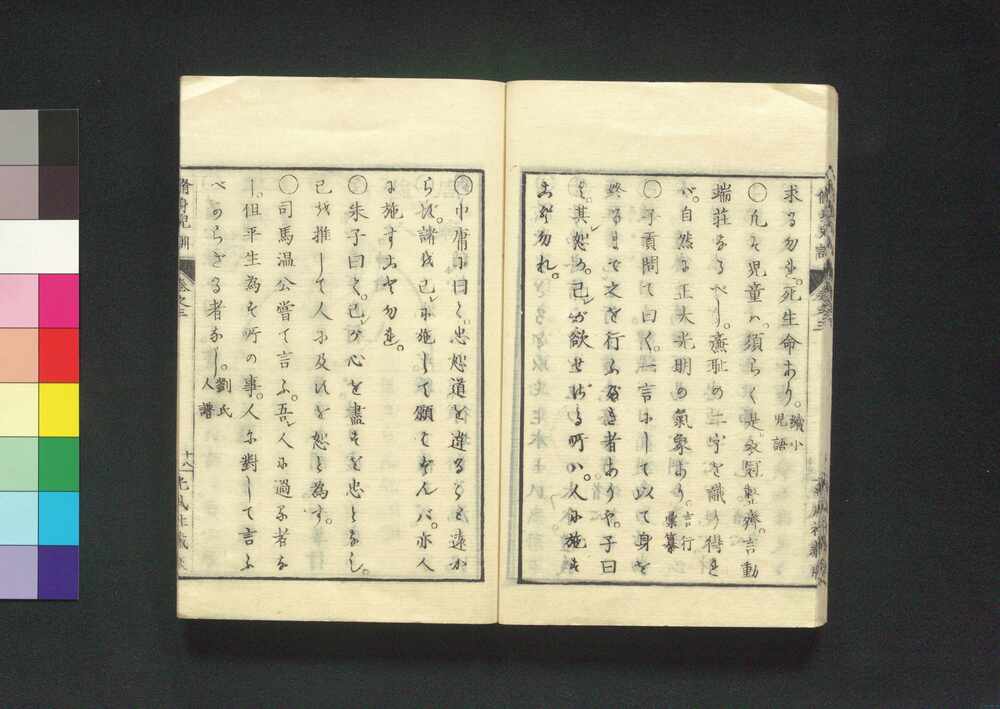 求る勿れ。死生命あり。續小
兒語
○凡そ兒童ハ、須らく是、衣冠整齊。言動
端莊なるべし。廉耻の二字を識り得れ
バ。自然に正大光明の氣象あり。言行
彙纂
○子貢問て曰く。一言にして以て身を
終るまで之を行ふ可き者ありや。子曰
く。其恕か。己が欲せざる所ハ。人に施す
こと勿れ。
○中庸に曰く。忠恕道を違ること遠か
らず。諸を己に施して願ハずんバ。亦人
に施すこと勿れ。
○朱子曰く。己が心を盡すを忠となし。
己を推して人に及ぼすを恕と為す。
○司馬温公嘗て言ふ。吾人に過る者な
し。但平生為す所の事。人に對して言ふ
べからざる者なし。劉氏
人譜
脩身兒訓
卷之三
十八